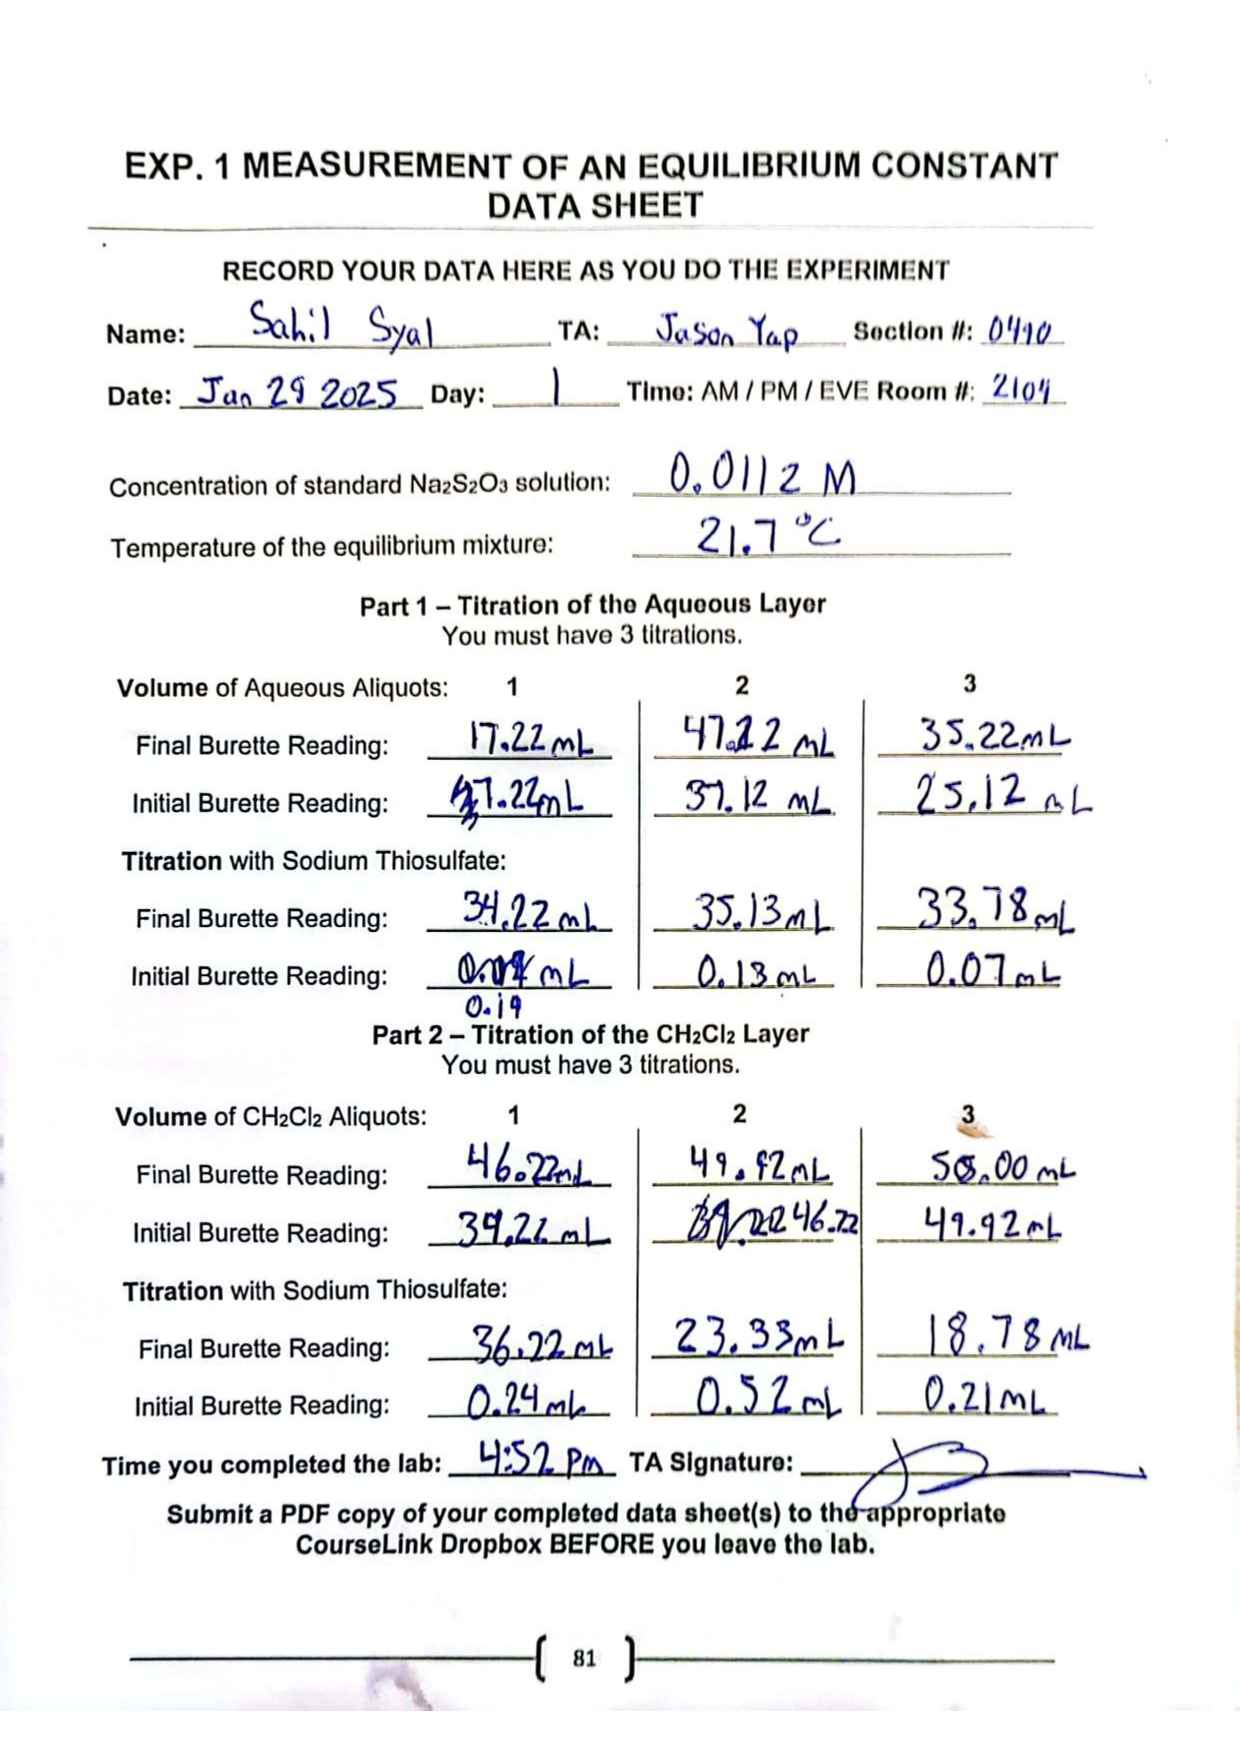 EXP. 1 MEASUREMENT OF AN EQUILIBRIUM CONSTANT
DATA SHEET
RECORD YOUR DATA HERE AS YOU DO THE EXPERIMENT
Name: Sahil Syal TA: Jason Yap Section #: 0410
Date: Jan 29 2025 Day: 1 Time: AM / PM / EVE Room #: 2104
Concentration of standard Na₂S₂O₃ solution: 0.0112 M
Temperature of the equilibrium mixture: 21.7 °C
Part 1 – Titration of the Aqueous Layer
You must have 3 titrations.
Volume of Aqueous Aliquots: 1 2 3
Final Burette Reading: 17.22 mL 47.22 mL 35.22 mL
Initial Burette Reading: 37.12 mL 25.12 mL
Titration with Sodium Thiosulfate:
Final Burette Reading: 34.22 mL 35.13 mL 33.78 mL
Initial Burette Reading: mL 0.13 mL 0.07 mL
0.19
Part 2 – Titration of the CH₂Cl₂ Layer
You must have 3 titrations.
Volume of CH₂Cl₂ Aliquots: 1 2 3
Final Burette Reading: 46.22 mL mL 50.00 mL
Initial Burette Reading: 39.22 mL 46.22 49.92 mL
Titration with Sodium Thiosulfate:
Final Burette Reading: 36.22 mL 23.33 mL 18.78 mL
Initial Burette Reading: 0.24 mL 0.52 mL 0.21 mL
Time you completed the lab: 4:52 Pm TA Signature:
Submit a PDF copy of your completed data sheet(s) to the appropriate
CourseLink Dropbox BEFORE you leave the lab.
81